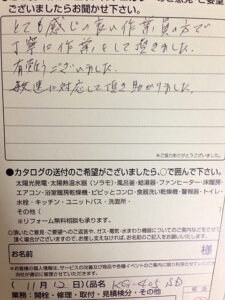 ございましたらお聞かせ下さい。
とても感じの良い作業員の方で
丁寧に作業をして頂きました。
有難うございました。
敏速に対応して頂き助かりました。
※ご協力ありがとうございました。
●カタログの送付のご希望がございましたら、○で囲んで下さい。
太陽光発電・太陽熱温水器(ソラモ)・風呂釜・給湯器・ファンヒーター・床暖房・
エアコン・浴室暖房乾燥機・ビピッとコンロ・食器洗い乾燥機・警報器・トイレ・
水栓・キッチン・ユニットバス・洗面所・
その他(
※リフォーム無料相談も承ります。
お名前
様
(11月12日)(品名 KG-405
業務:開栓・修理・取付・見積検分・その他